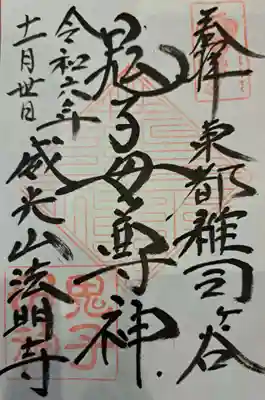 奉拝
東都雑司ヶ谷
鬼子母尊神
威光山法明寺
令和六年
十一月廿日